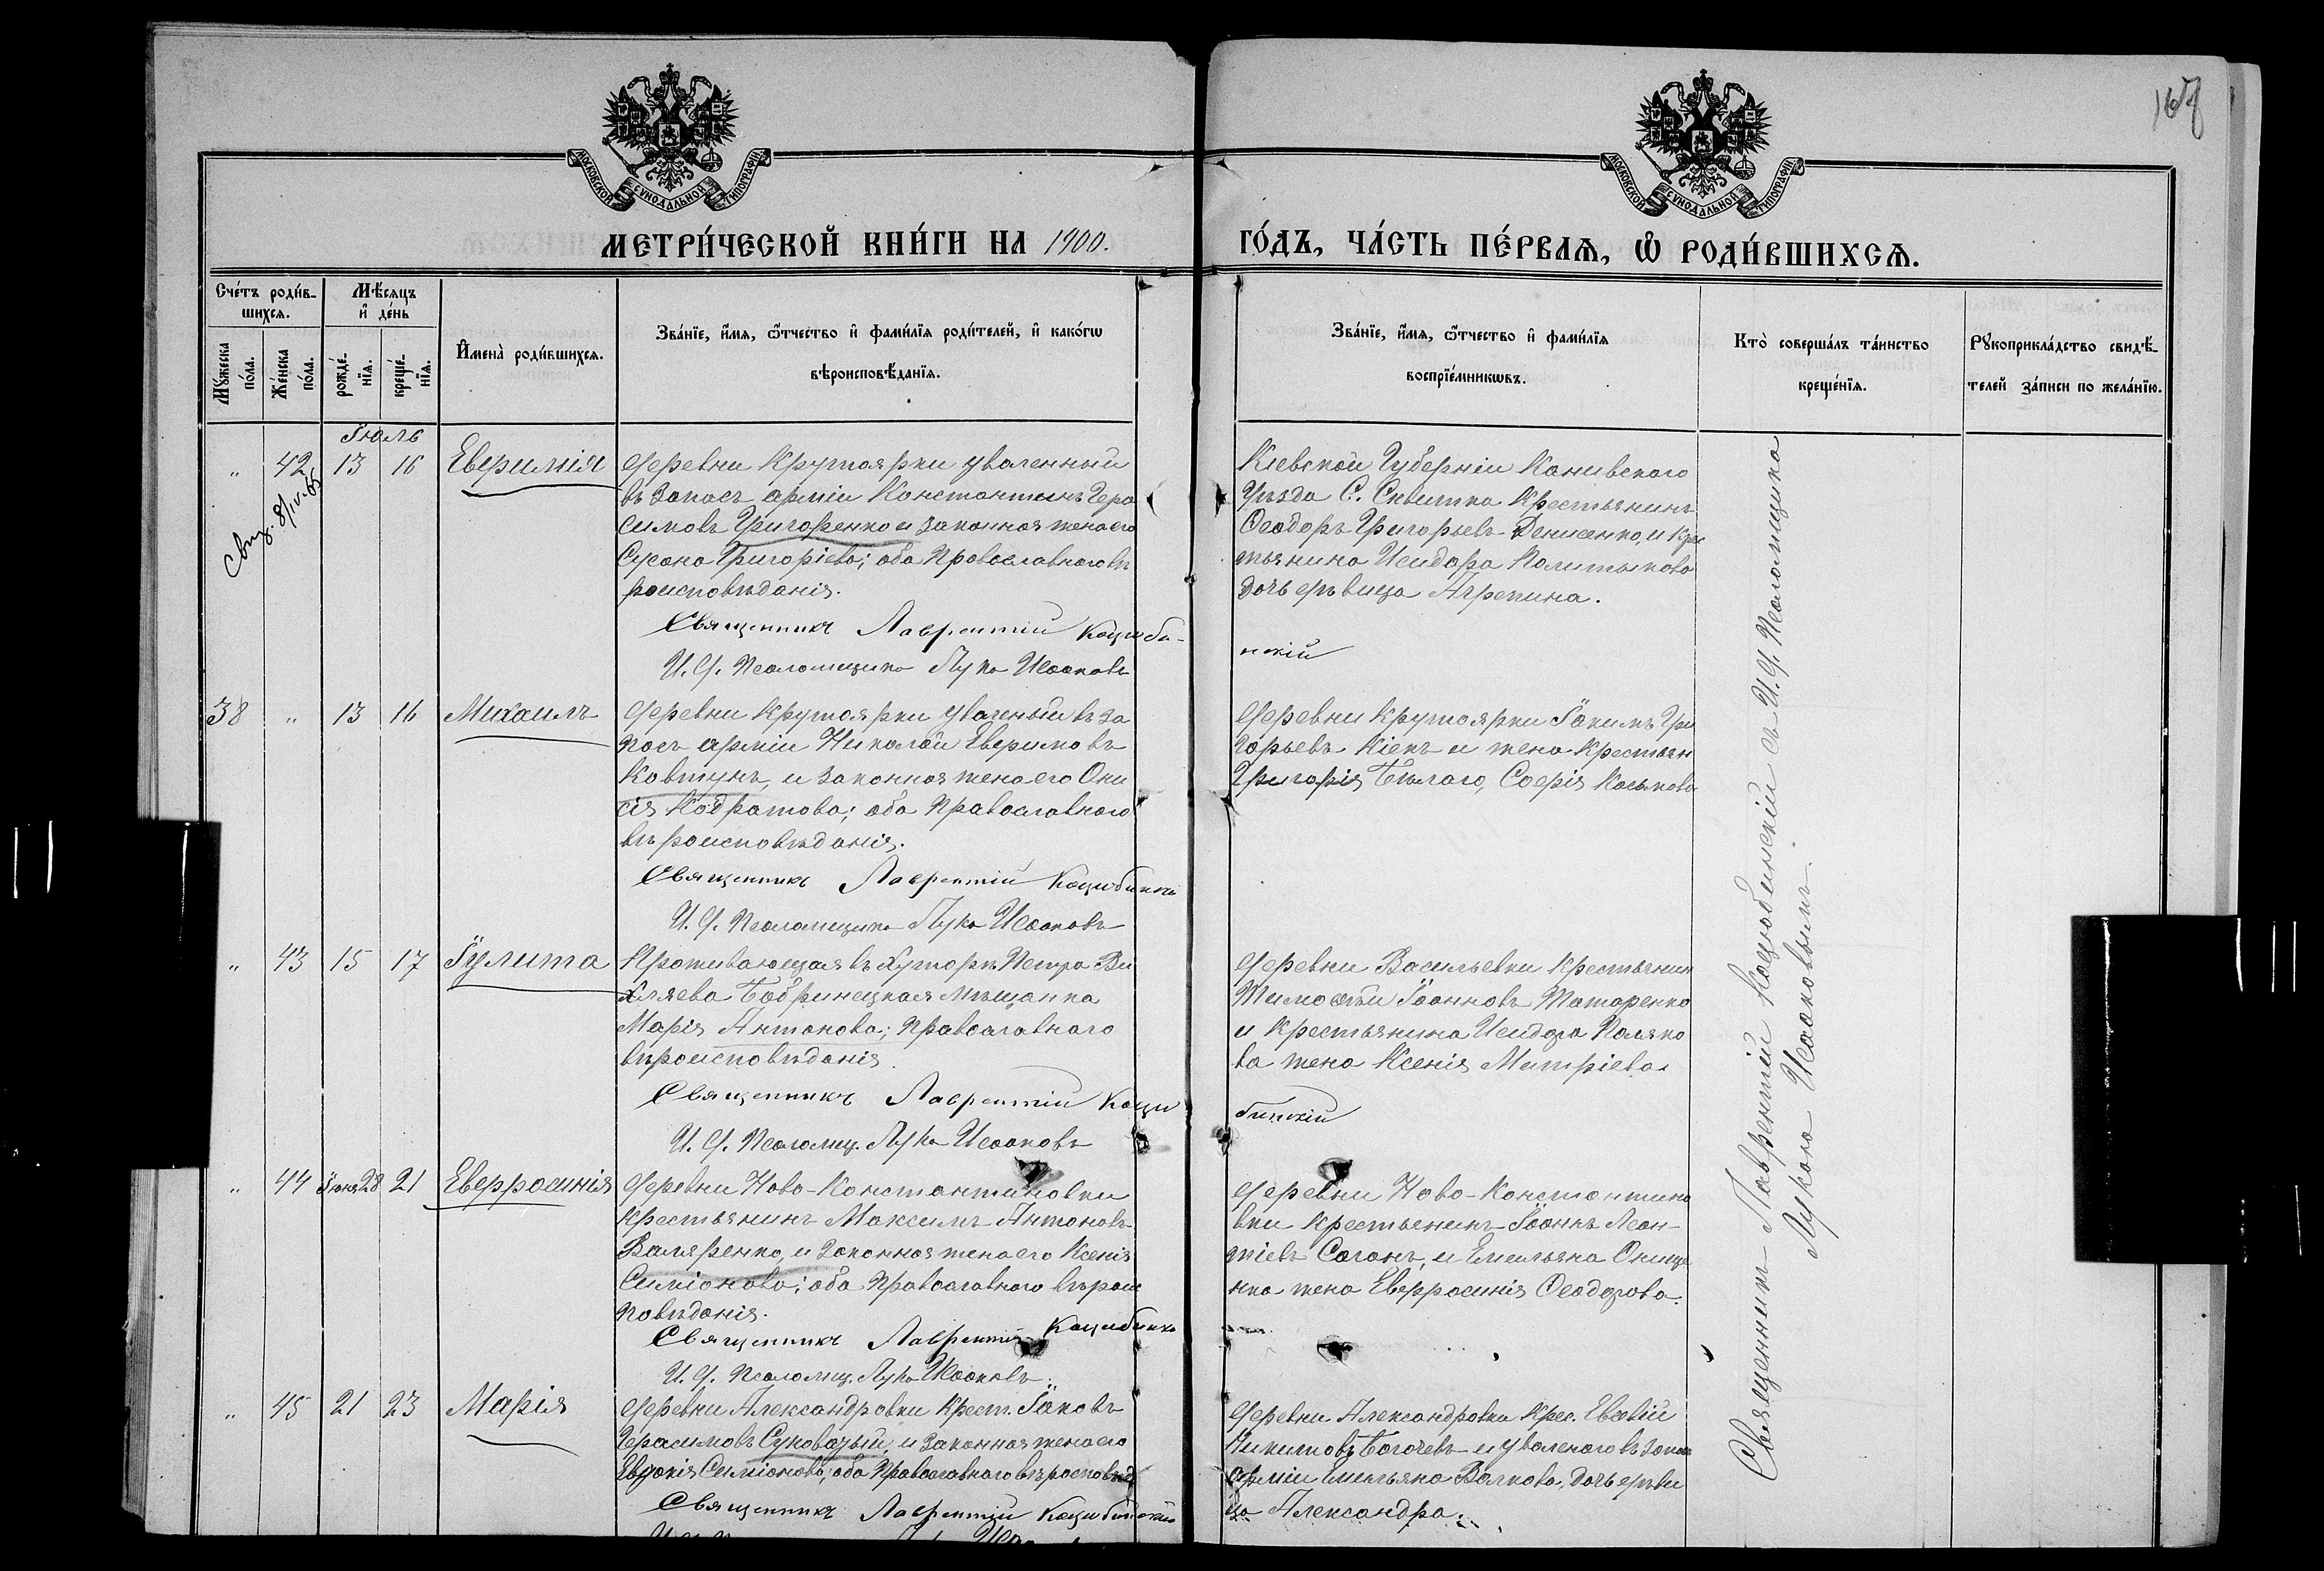 167
МОСКОВСКОЙ СѴНОДАЛЬНОЙ ТИПОГРАФІИ
МОСКОВСКОЙ СѴНОДАЛЬНОЙ ТИПОГРАФІИ
МЕТРИ́ЧЕСКОЙ КНИ́ГИ НА 1900.
ГО́ДЪ, ЧА́СТЬ ПЕ́РВАѦ, Ѽ РОДИ́ВШИХСѦ.
Сче́тъ роди́в-
шихсѧ.
Мꙋжеска по́ла.
Же́нска по́ла.
Мѣ́сѧцъ
и҆ де́нь
рожде́-
нїѧ.
креще́-
нїѧ.
И҆мена̀ роди́вшихсѧ.
Зва́нїе, и҆́мѧ, ѻ҆́тчество и҆ фами́лїѧ роди́телей, и҆ како́гѡ
вѣроисповѣ́данїѧ.
Зва́нїе, и҆́мѧ, ѻ҆́тчество и҆ фами́лїѧ
воспрїе́мникѡвъ.
Кто̀ соверша́лъ та́инство
креще́нїѧ.
Рꙋкоприкла́дство свидѣ́-
телей за́писи по жела́нїю.
Іюль
" 42 13 16 Евфимія
Свид. 8/IV-65
деревни Крутоярки уволенный
въ запасъ арміи Константинъ Гера
симовъ Григоренко и законная жена его
Сусана Григоріева; оба Православнаго вѣ
роисповѣданія.
Священникъ Лаврентій Коцюби-
нскій
И. д. Псаломщика Лука Исааковъ
Кіевской Губерніи Каневскаго
Уѣзда С. Крестьянинъ
Ѳеодоръ Григорьевъ Денисенко, и Крес
тьянина Исидора Полтыкова
дочь дѣвица Агрепина.
38 " 13 16 Михаилъ
деревни Крутоярки уволеный въ за
пасъ арміи Николай Евфимовъ
Ковтунъ, и законная жена его Они
сія Кодратова; оба Православного
вѣроисповѣданія.
Священникъ Лаврентій Коцюбинскій
И. д. Псаломщика Лука Исааковъ
деревни Крутоярки Іакимъ Гри
горьевъ Кіекъ и жена Крестьян
Григорія Бѣлаго, Софія Каськова
" 43 15 17 Іулита
Проживающая въ Хуторѣ Петра Ви
хляева Бобринецкая мѣщанка
Марія Антонова; Православнаго
вѣроисповѣданія.
Священникъ Лаврентій Коцю
бинскій
И. д. Псаломщ. Лука Исааковъ
деревни Васильевки Крестьянин
Тимоѳей Іоанновъ Татаренко
и Крестьянина Исидора Поляко
ва жена Ксенія Митріева
" 44 Іюня 28 21 Евфросинія
деревни Ново-Константиновки
Крестьянинъ Максимъ Антоновъ
Валяренко, и законная жена его Ксенія
Симіонова; оба Православнаго вѣроис
повѣданія.
Священникъ Лаврентій Коцюбинскі
И. д. Псаломщ. Лука Исааковъ.
деревни Ново-Константино
вки Крестьенинъ Іоаннъ Леон-
тіевъ Саганъ, и Емельяна Онище
нка жена Евфросинія Ѳеодорова.
" 45 21 23 Марія
деревни Александровки Крест. Іаковъ
Герасимовъ Суковатый, и законная жена его
Евдокія Симіонова; оба Православнаго вѣроисповѣд
Священникъ Лаврентій Коцюбинскій
деревни Александровка Крес. Евсевій
Никитовъ Богачевъ и уволеного въ запас
арміи Емельяна Волкова, дочь дѣви
ца Александра.
Священникъ Лаврентій Коцюбинскій съ И. д. Псаломщика
Лукою Исааковымъ.